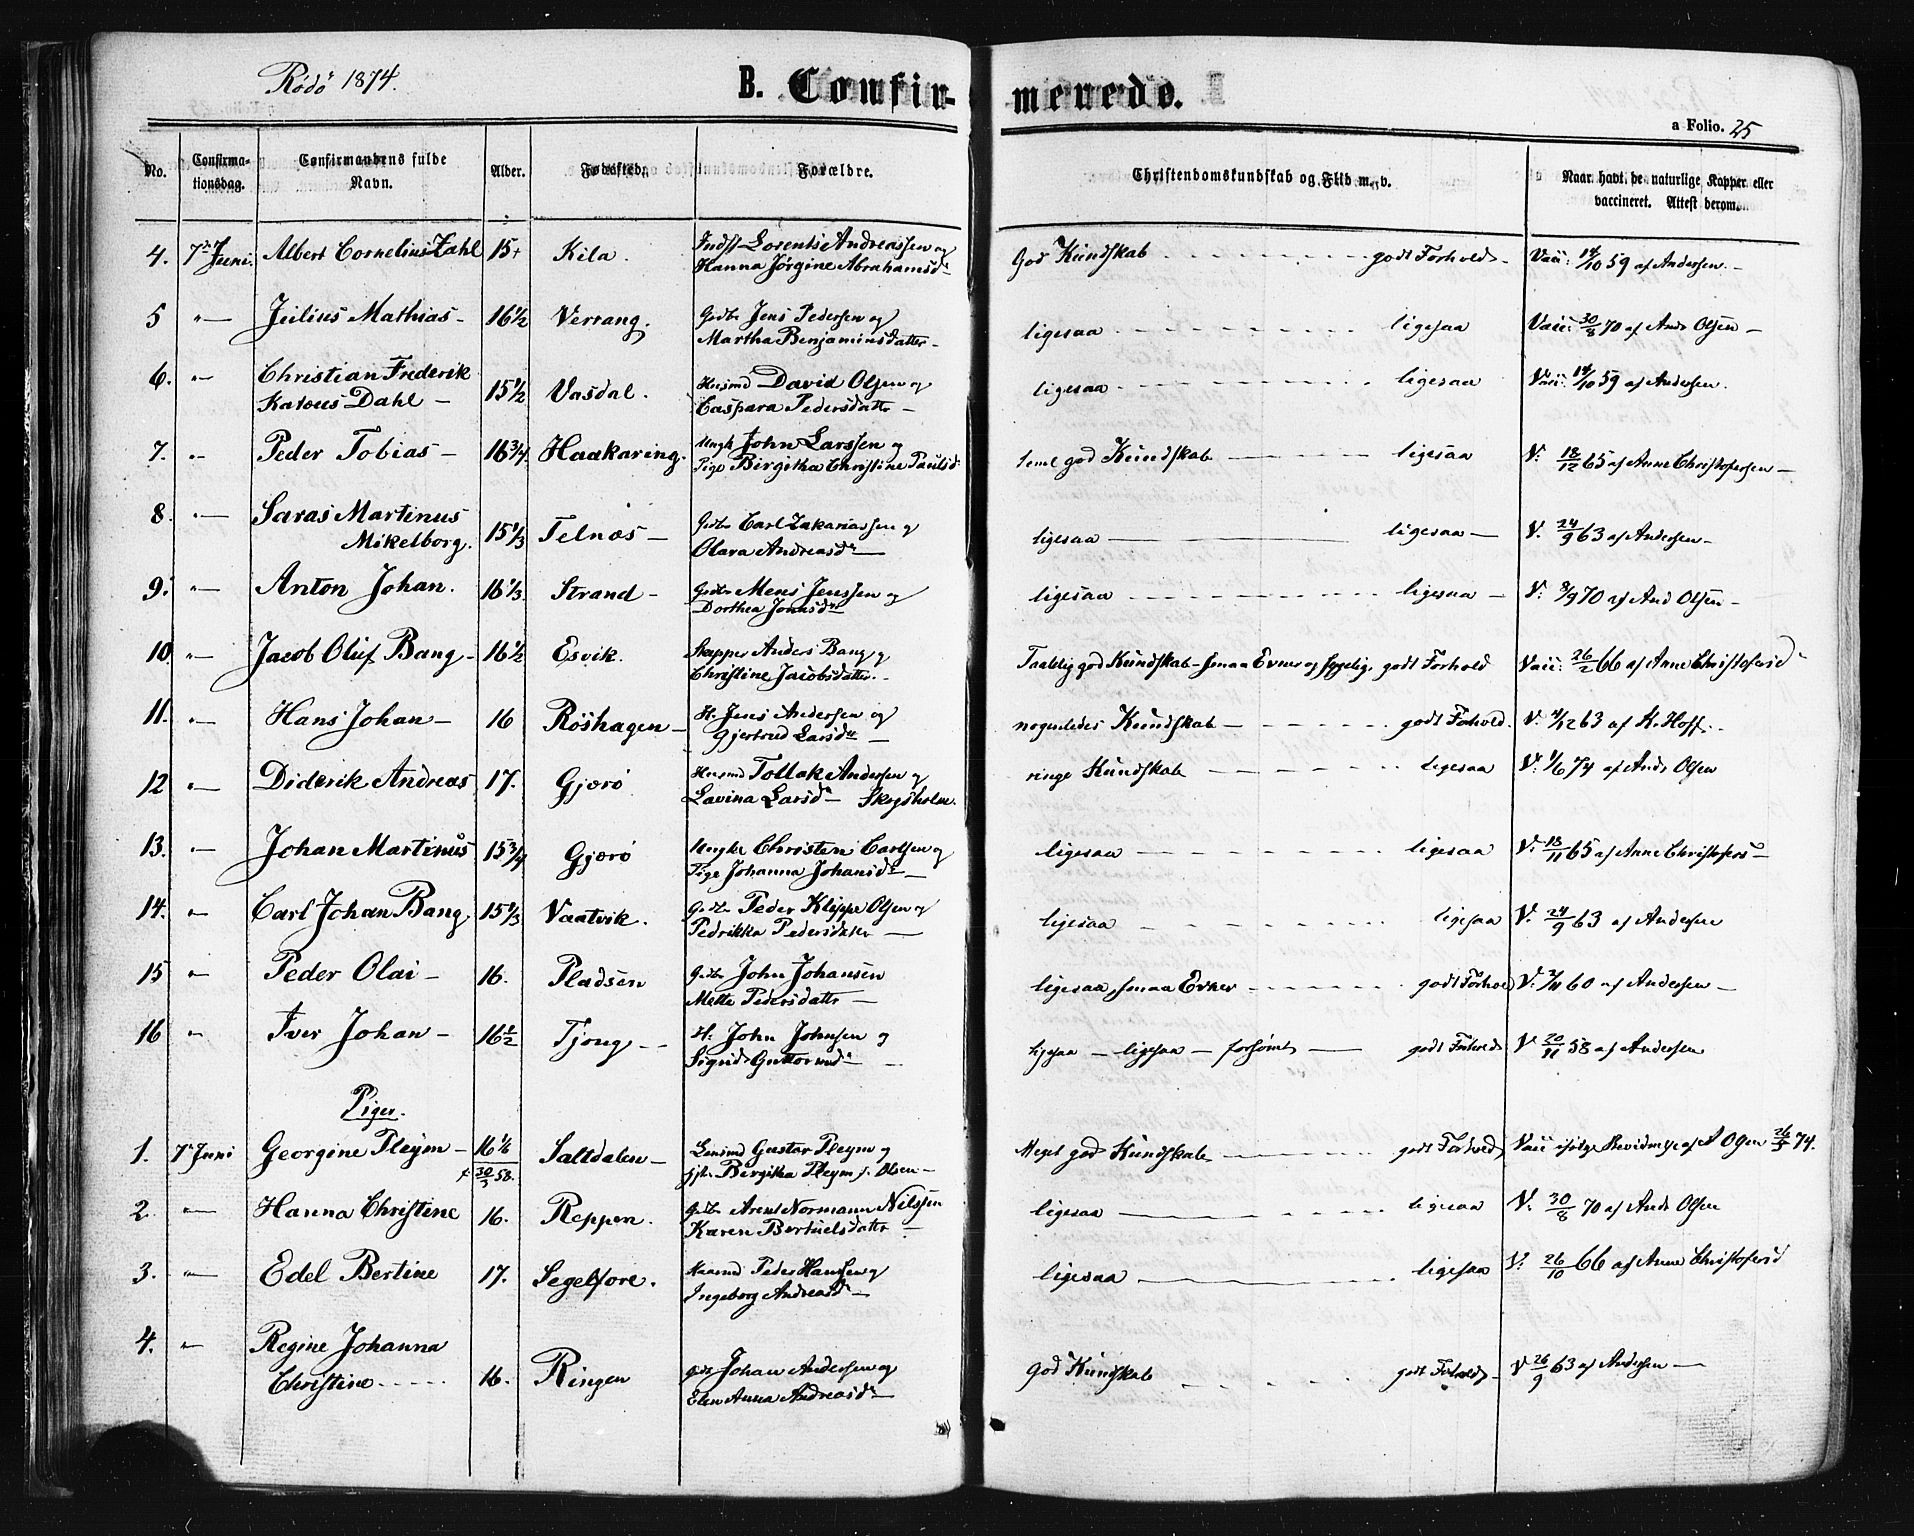 Rødø 1874.
B. Confir-
merede.
a Folio. 25
No.
Confirma-
tionsdag.
Confirmandens fulde
Navn.
Alder.
Fødested.
Forældre.
Christendomskundskab og Flid m. v.
Naar havt de naturlige Kopper eller
vaccineret. Attest derom.
4. 7de Juni. Albert Cornelius Zahl 15+ Kila. Indst Lorents Andreassen og
Hanna Jørgine Abrahamsdr
God Kundskab godt Forhold Vacc: 14/10 59 af Andersen
5 " Julius Mathias 16 1/2 Verrang. Gaardbr Jens Pedersen og
Martha Benjaminsdatter
ligesaa ligesaa Vacc: 30/8 70 af And Olsen
6. " Christian Frederik
Katous Dahl 15 1/2 Vasdal. Husmd David Olsen og
Caspara Pedersdattr
ligesaa ligesaa Vacc: 14/10 59 af Andersen.
7. " Peder Tobias 16 3/4 Haakaring. Ungk John Larssen og
Pige Birgitha Christine Paulsd
teml god Kundskab ligesaa V: 18/12 65 af Anne Christofersen
8. " Saras Martinus
Mikelborg. 15 1/3 Telnæs Gdbr Carl Zakariassen og
Olava Andreasdr
ligesaa ligesaa V. 24/9 63 af Andersen
9. " Anton Johan. 16 1/3 Strand Gdbr Mens Jenssen og
Dorthea Jonnsdr
ligesaa ligesaa V: 8/9 70 af And Olsen
10. " Jacob Oluf Bang 16 1/2 Esvik. Anders Bang og
Christine Jacobsdatter.
Taalelig god Kundskab smaa Evner og sygelig. godt Forhold Vacc: 26/2 66 af Anne Christofersd
11. " Hans Johan 16 Røshagen H. Jens Andersen og
Gjertrud Larsdr
nogenledes Kundskab godt Forhold. V. 4/12 63 af K. Hoff.
12 " Diderik Andreas 17. Gjærø Husmd Tollak Andersen og
Lavina Larsdr Skogsholm.
ringe Kundskab ligesaa V: 1/6 74 af And Olsen
13. " Johan Martinus 15 3/4 Gjærø Ungke Christen Carlsen og
Pige Johanna Johansdr
ligesaa ligesaa V: 18/11 65 af Anne Christofers
14. " Carl Johan Bang 15 2/3 Vaatvik. Gdbr Peder Klippe Olsen og
Pedrikka Pedersdattr
ligesaa ligesaa V. 24/9 63 af Andersen
15 " Peder Olai 16. Pladsen Gdbr John Johansen
Mette Pedersdattr
ligesaa, smaa Evner godt Forhold V: 2/11 60 af Andersen
16 " Iver Johan 16 1/2 Tjong H: John Johnsen og
Sigrid Guttormsdr
ligesaa ligesaa forsømt godt Forhold V 20/11 58 af Andersen
Piger.
1. 7de Juni Georgine Pleym 16 1/6 Saltdalen Lensmd Gustav Pleym og
f 30/3 58. Hst. Birgitha Pleym f. Olsen
Meget god Kundskab godt Forhold Vacc ifølge Revidering af A Olsen 26/5 74.
2. " Hanna Christine 16. Reppen. Gdbr Arent Normann Nilssen
Karen Bertuelsdattr
ligesaa ligesaa V: 30/8 70 af And Olsen
3. " Edel Bertine 17. Segelfore. Huusmd Peder Hanssen og
Ingeborg Andreasdr
ligesaa ligesaa V: 26/10 66 af Anne Christofersd
4. " Regine Johanna
Christine 16. Ringen Gdb Johan Andersen og
Elen Anna Andreasdr
God Kundskab godt Forhold V 26/9 63 af Andersen